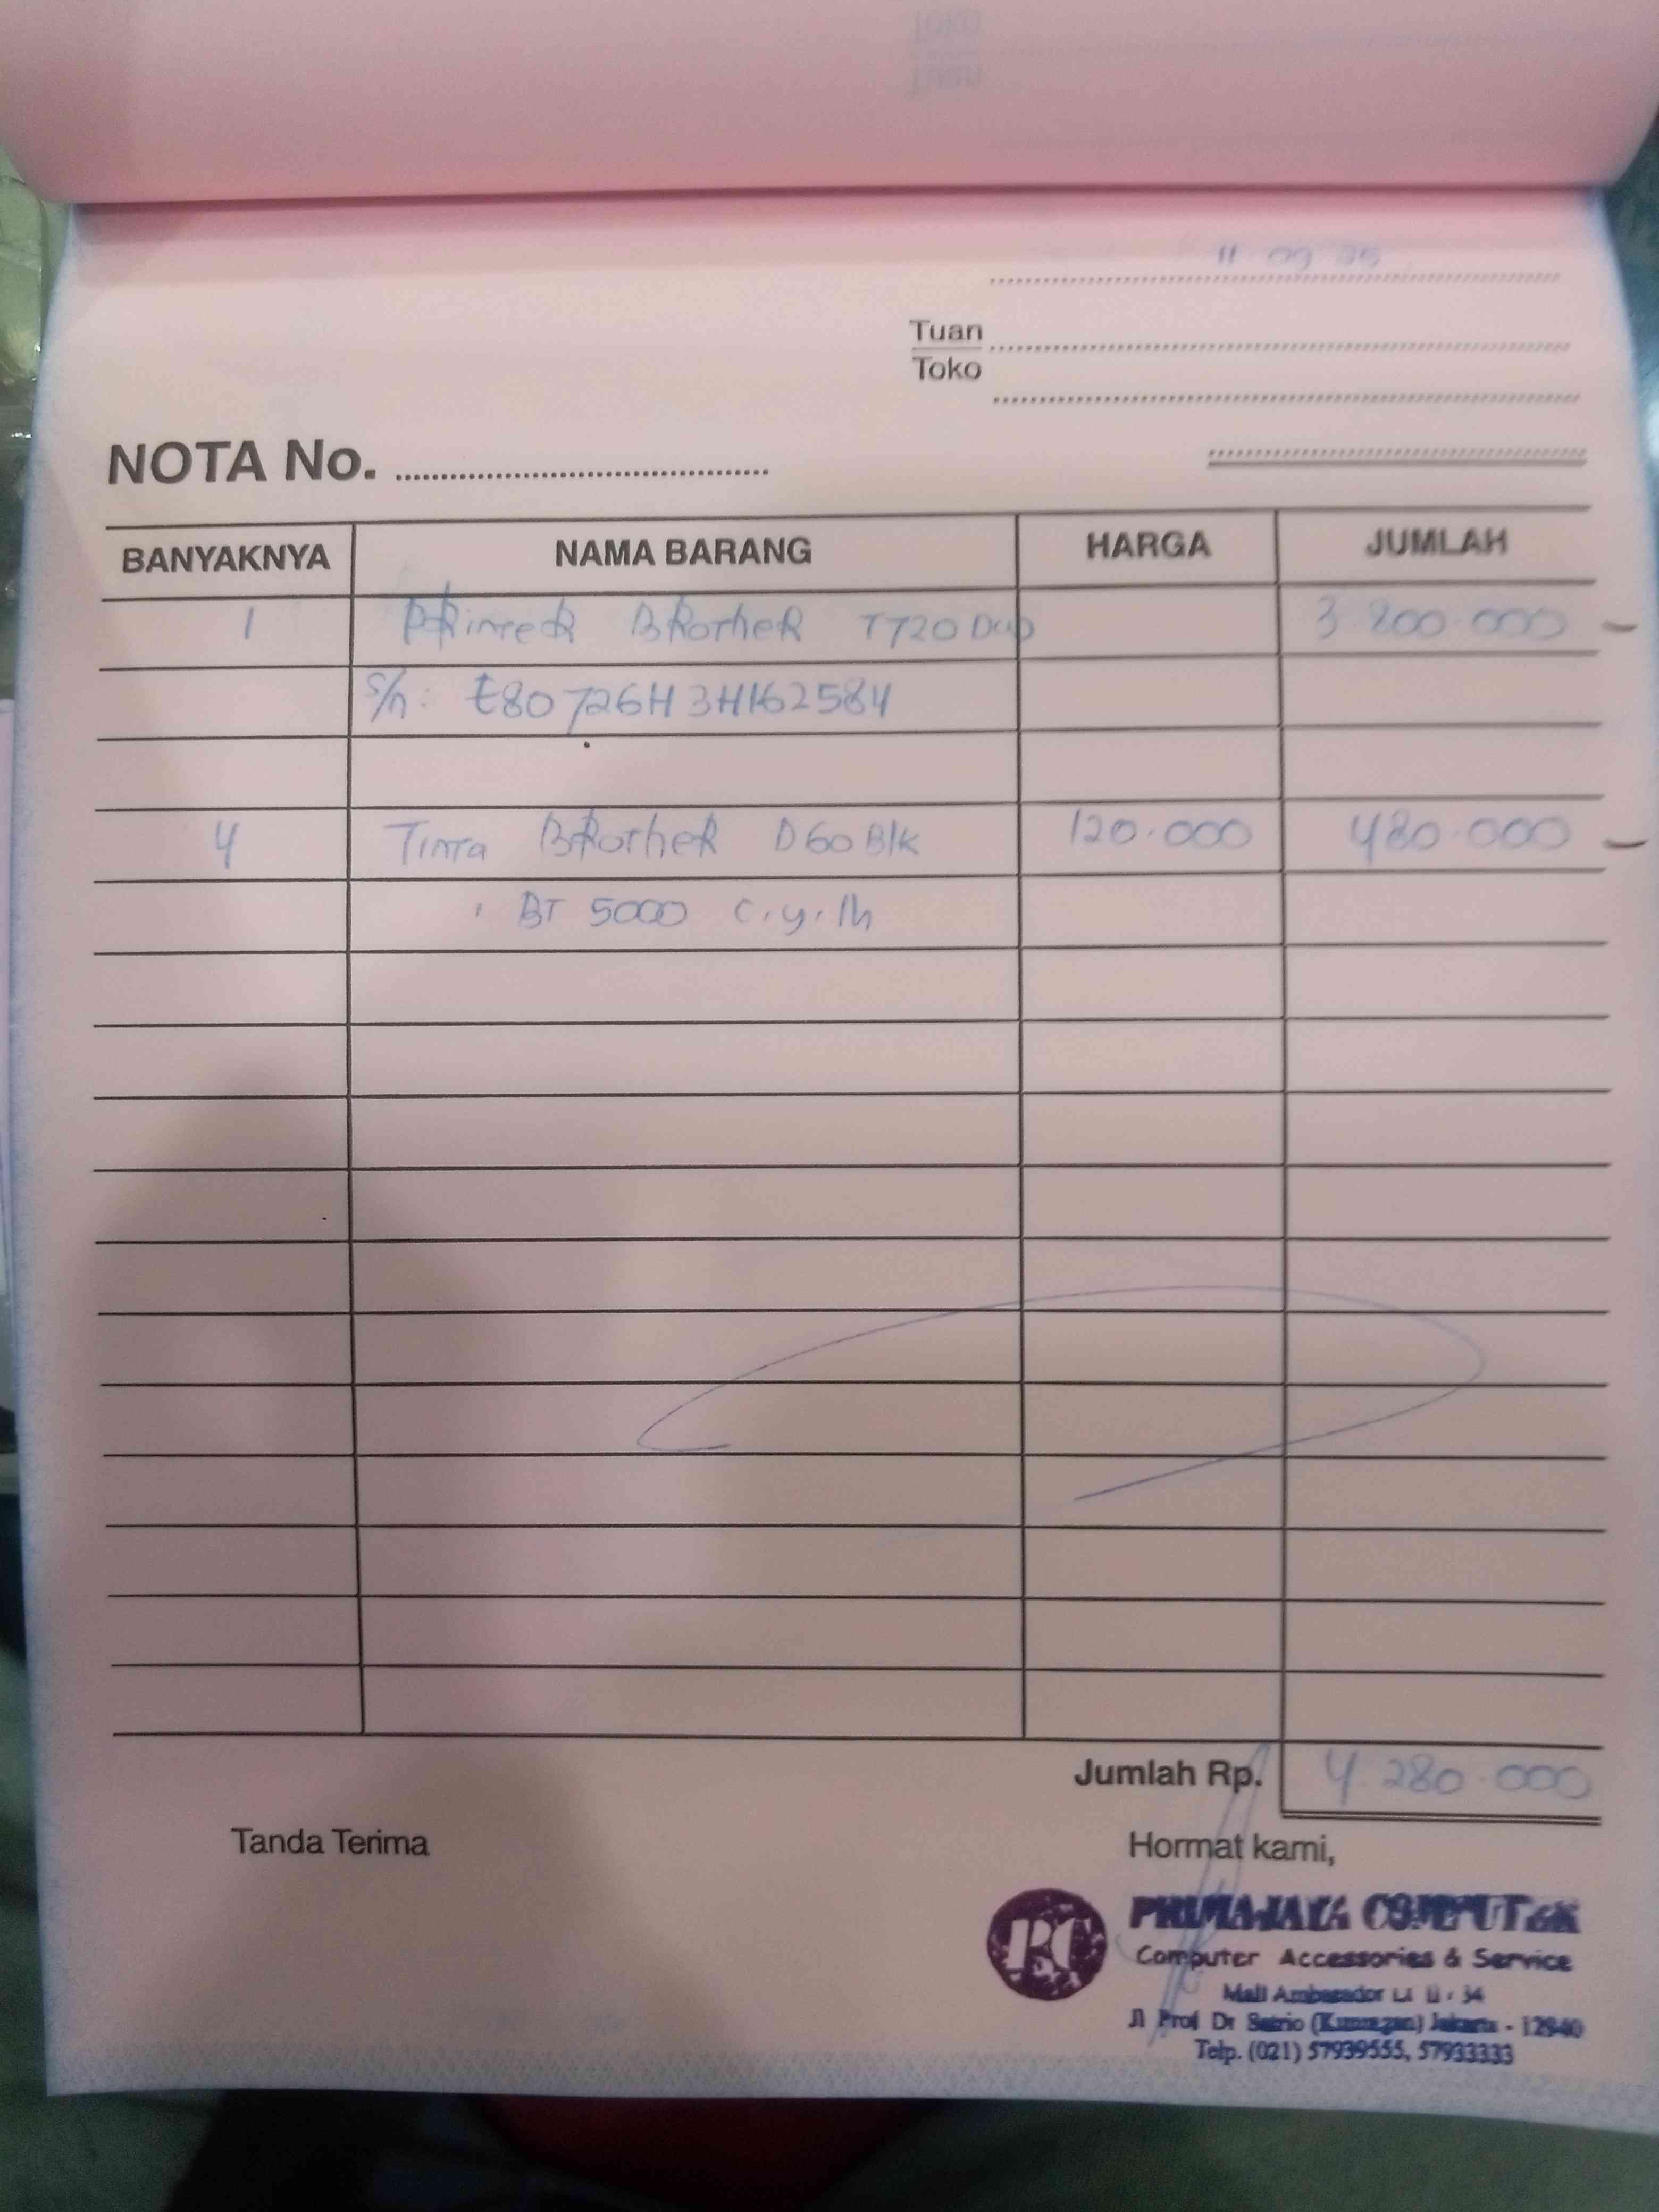 11 09 25
Tuan
Toko
NOTA No.
BANYAKNYA NAMA BARANG HARGA JUMLAH
1 PRinteR BRotheR T720 DW 3.800.000
S/n: E80726H3H162584
4 Tinta BRotheR D60 Blk 120.000 480.000
BT 5000 c.y.m
Jumlah Rp. 4.280.000
Tanda Terima Hormat kami,
PRIMAJAYA COMPUTER
Computer Accessories & Service
Mall Ambasador Lt
Jl Prof Dr Satrio (Kuningan) Jakarta - 12940
Telp. (021) 57939555, 57933333